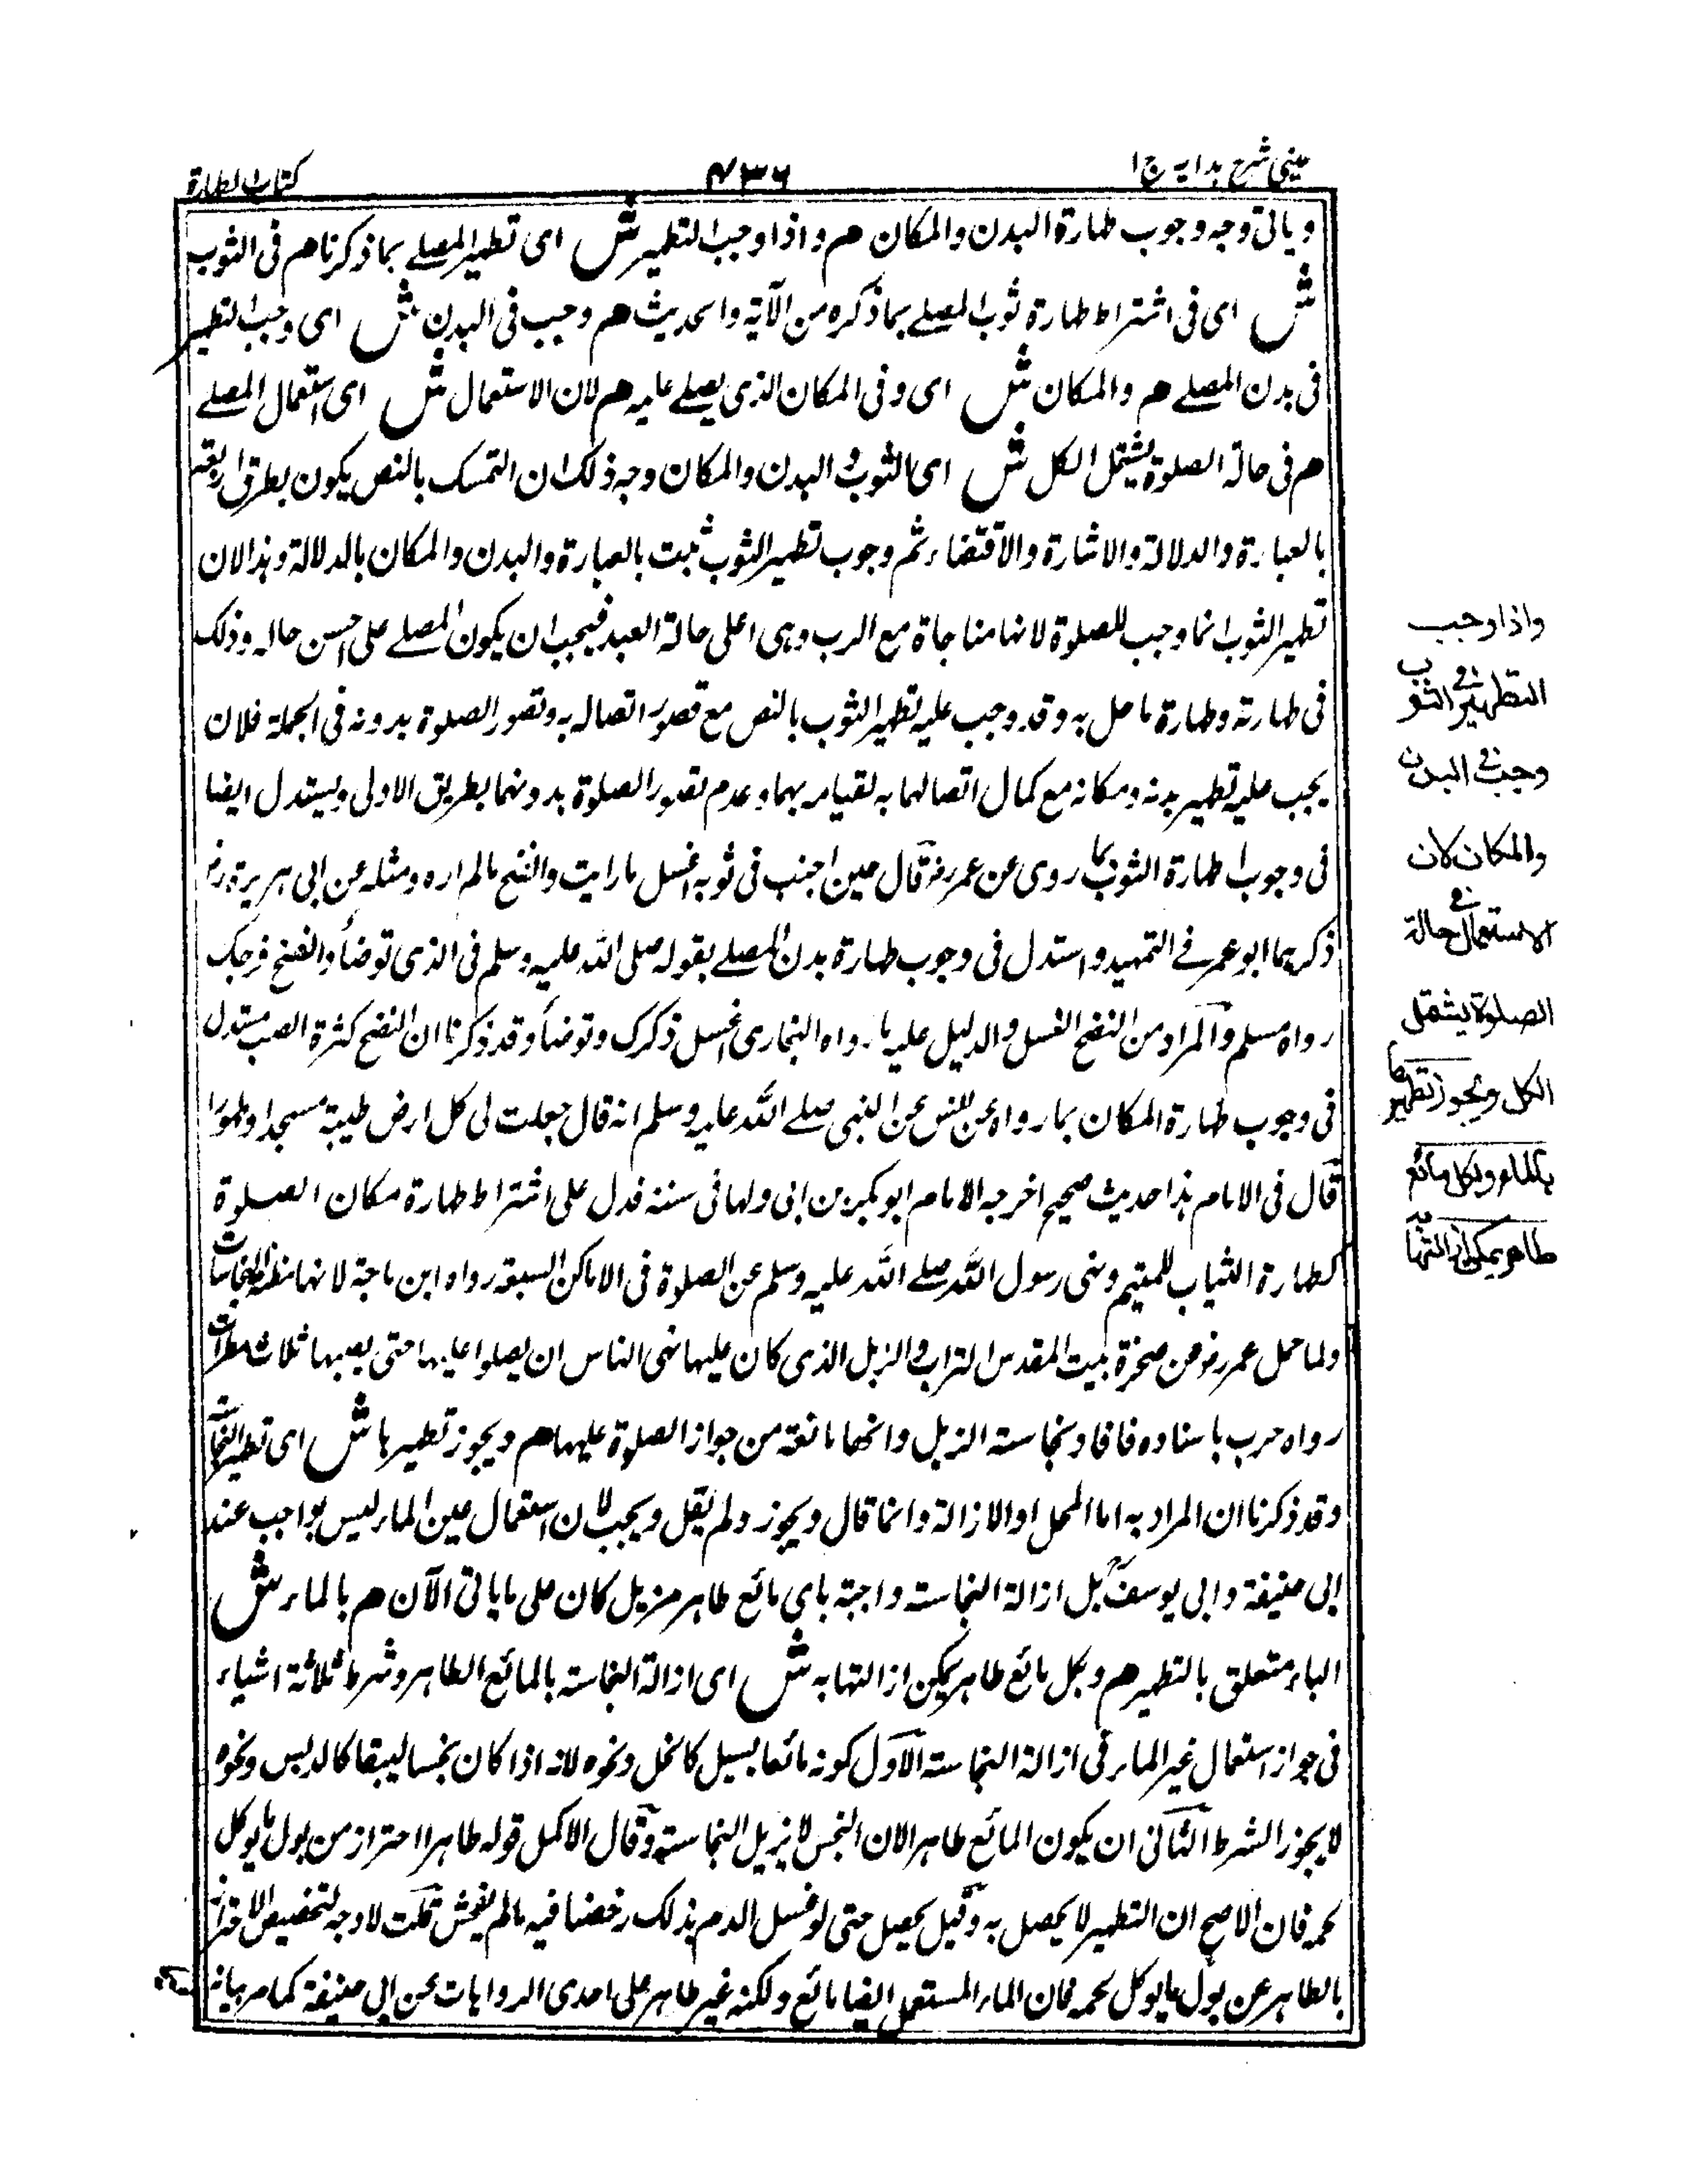 عینی شرح ہدایہ ج ۱
۷۳۶
کتاب الطہارة
ویاتی وجہ وجوب طہارة البدن والمکان ھم واذا وجب التطہیر ش ای تطہیر المصلے بما ذکرنا ھم فی الثوب
ش ای فی اشتراط طہارة ثوب المصلے بما ذکرہ من الآیة والحدیث ھم وجب فی البدن ش ای وجب التطہیر
فی بدن المصلے ھم والمکان ش ای وفی المکان الذی یصلے علیہ ھم لان الاستعمال ش ای استعمال المصلے
ھم فی حالة الصلوة یشتمل الکل ش ای الثوب والبدن والمکان وجہ ذلک ان التمسک بالنص یکون بطرق اربعة
بالعبارة والدلالة والاشارة والاقتضاء ثم وجوب تطہیر الثوب ثبت بالعبارة والبدن والمکان بالدلالة وہذا لان
تطہیر الثوب انما وجب للصلوة لانہا مناجاة مع الرب وہی اعلی حالة العبد فیجب ان یکون المصلے علی احسن حالہ وذلک
فی طہارتہ وطہارة ما حل بہ وقد وجب علیہ تطہیر الثوب بالنص مع قصور اتصالہ بہ وتصور الصلوة بدونہ فی الجملة فلان
یجب علیہ تطہیر بدنہ ومکانہ مع کمال اتصالہما بہ لقیامہ بہما وعدم تصور الصلوة بدونہما بطریق الاولی ویستدل ایضا
فی وجوب طہارة الثوب بما روی عن عمر رض قال حین اجنب فی ثوبہ اغسل ما رایت وانضح مالم ارہ ومثلہ عن ابی ہریرة رض
ذکرہما ابو عمر فے التمہید واستدل فی وجوب طہارة بدن المصلے بقولہ صلی اللہ علیہ وسلم فی الذی توضأ وانضح فرجک
رواہ مسلم والمراد من النضح الغسل والدلیل علیہ ما رواہ البخاری اغسل ذکرک وتوضأ وقد ذکرنا ان النضح کثرة الصب یستدل
فی وجوب طہارة المکان بما رواہ عن انس عن النبی صلے اللہ علیہ وسلم انہ قال جعلت لی کل ارض طیبة مسجدا وطہورا
قال فی الامام ہذا حدیث صحیح اخرجہ الامام ابو بکر بن ابی فی سننہ فدل علی اشتراط طہارة مکان الصلوة
کطہارة الثیاب للمتیمم ونہی رسول اللہ صلے اللہ علیہ وسلم عن الصلوة فی الاماکن السبعة رواہ ابن ماجة لانہا مظنة النجاسات
ولما حمل عمر رض من صخرة بیت المقدس التراب والزبل الذی کان علیہا نہی الناس ان یصلوا علیہا حتی یصبہا ثلاث مطرات
رواہ حرب باسنادہ فافاد نجاستہ الزبل وانھا مانعة من جواز الصلوة علیہا ھم ویجوز تطہیرہا ش ای تطہیر النجاسة
وقد ذکرنا ان المراد بہ اما المحل او الازالة وانما قال ویجوز ولم یقل ویجب لان استعمال عین الماء لیس بواجب عند
ابی حنیفة وابی یوسف بل ازالة النجاستہ واجبة بای مائع طاہر مزیل کان علی ما یاتی الآن ھم بالماء ش
الباء متعلق بالتطہیر ھم وبکل مائع طاہر یمکن ازالتہا بہ ش ای ازالة النجاستہ بالمائع الطاہر وشرط ثلاثة اشیاء
فی جواز استعمال غیر الماء فی ازالة النجاستہ الاول کونہ مائعا یسیل کالخل ونحوہ لانہ اذا کان کالدبس ونحوہ
لا یجوز الشرط الثانی ان یکون المائع طاہرا لان النجس لا یزیل النجاستہ وقال الاکمل قولہ طاہرا احتراز من بول ما یوکل
لحمہ فان الاصح ان التطہیر لا یحصل بہ وقیل یحصل حتی لو غسل الدم بذلک رخصنا فیہ مالم یفحش قلت لا وجہ لتخصیص الاحتراز
بالطاہر عن بول ما یوکل لحمہ فان الماء المستعمل ایضا مائع ولکنہ غیر طاہر علی احدی الروایات عن ابی حنیفة کما مر بیانہ
واذا وجب
التطہیر فی الثوب
وجب فی البدن
والمکان لان
الاستعمال فی حالة
الصلوة یشتمل
الکل ویجوز تطہیرھا
بالماء وبکل مائع
طاھر یمکن ازالتہا بہ